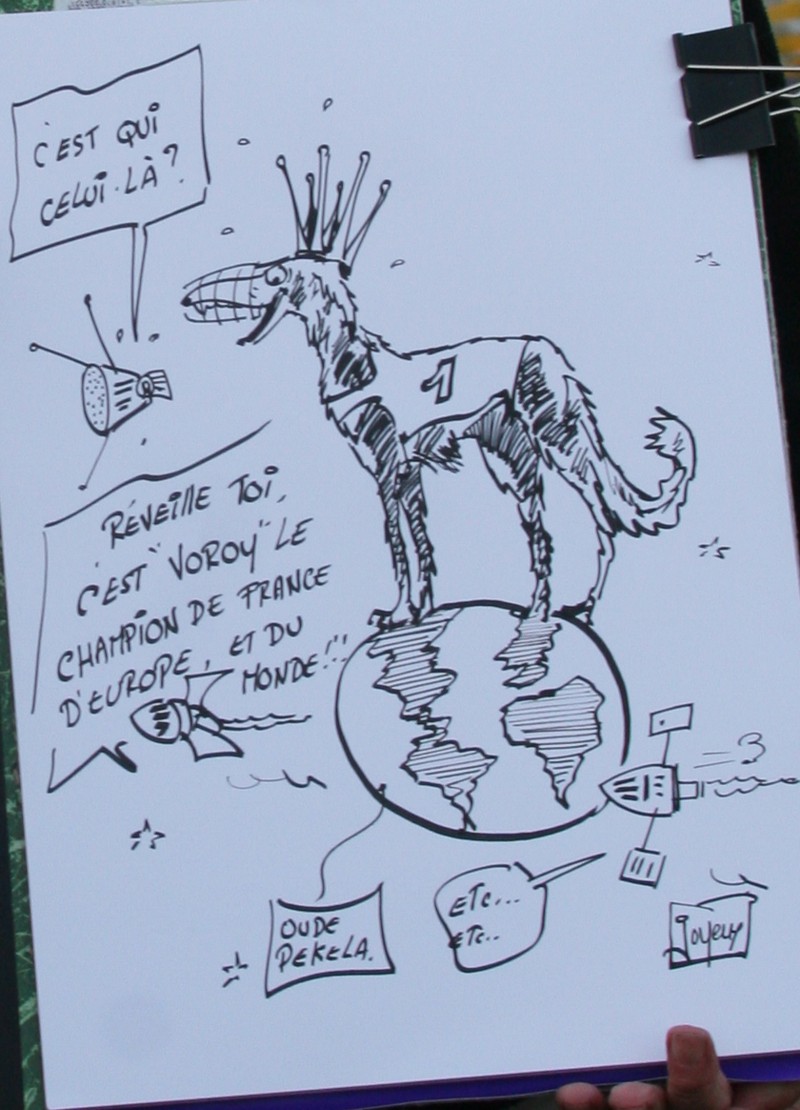 C'EST QUI
CELUI-LÀ?
1
RÉVEILLE TOI,
C'EST "VOROY" LE
CHAMPION DE FRANCE
D'EUROPE, ET DU
MONDE!!
OUDE
PEKELA.
ETC...
ETC..